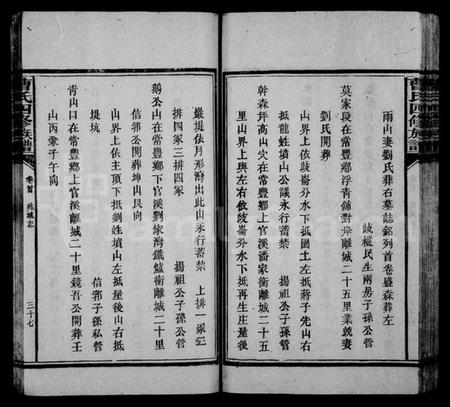 曹氏四修族譜
雨山妻劉氏葬右墓誌銘列首卷盛森葬左
歧樅民生兩房子孫公管
莫家段在常豐鄉浮青舖對岸離城二十五里業兢妻
劉氏開葬
山界上依歧崙分水下抵圳土左抵蔣子先山右
抵龍姓墳山公議永行蓄禁 揚祖公子孫公管
幹森坪高山穴在常豐鄉上官溪潘家衝離城二十五
里山界上與左右依歧崙分水下抵再生庄屋後
嚴堤依月形灣出此山永行蓄禁 上排一冢
排四冢三排四冢 揚祖公子孫公管
鵝公山在常豐鄉下官溪劉家灣鐵爐衝離城二十里
信邹公開葬坤山艮向
山界上依主頂下抵劉姓墳山左抵屋後山右抵
堤坑 信邹子孫私管
青山口在常豐鄉上官溪離城二十里鏡吾公開葬壬
山丙兼子午向
曹氏四修族譜
卷首 兆域志
三十七